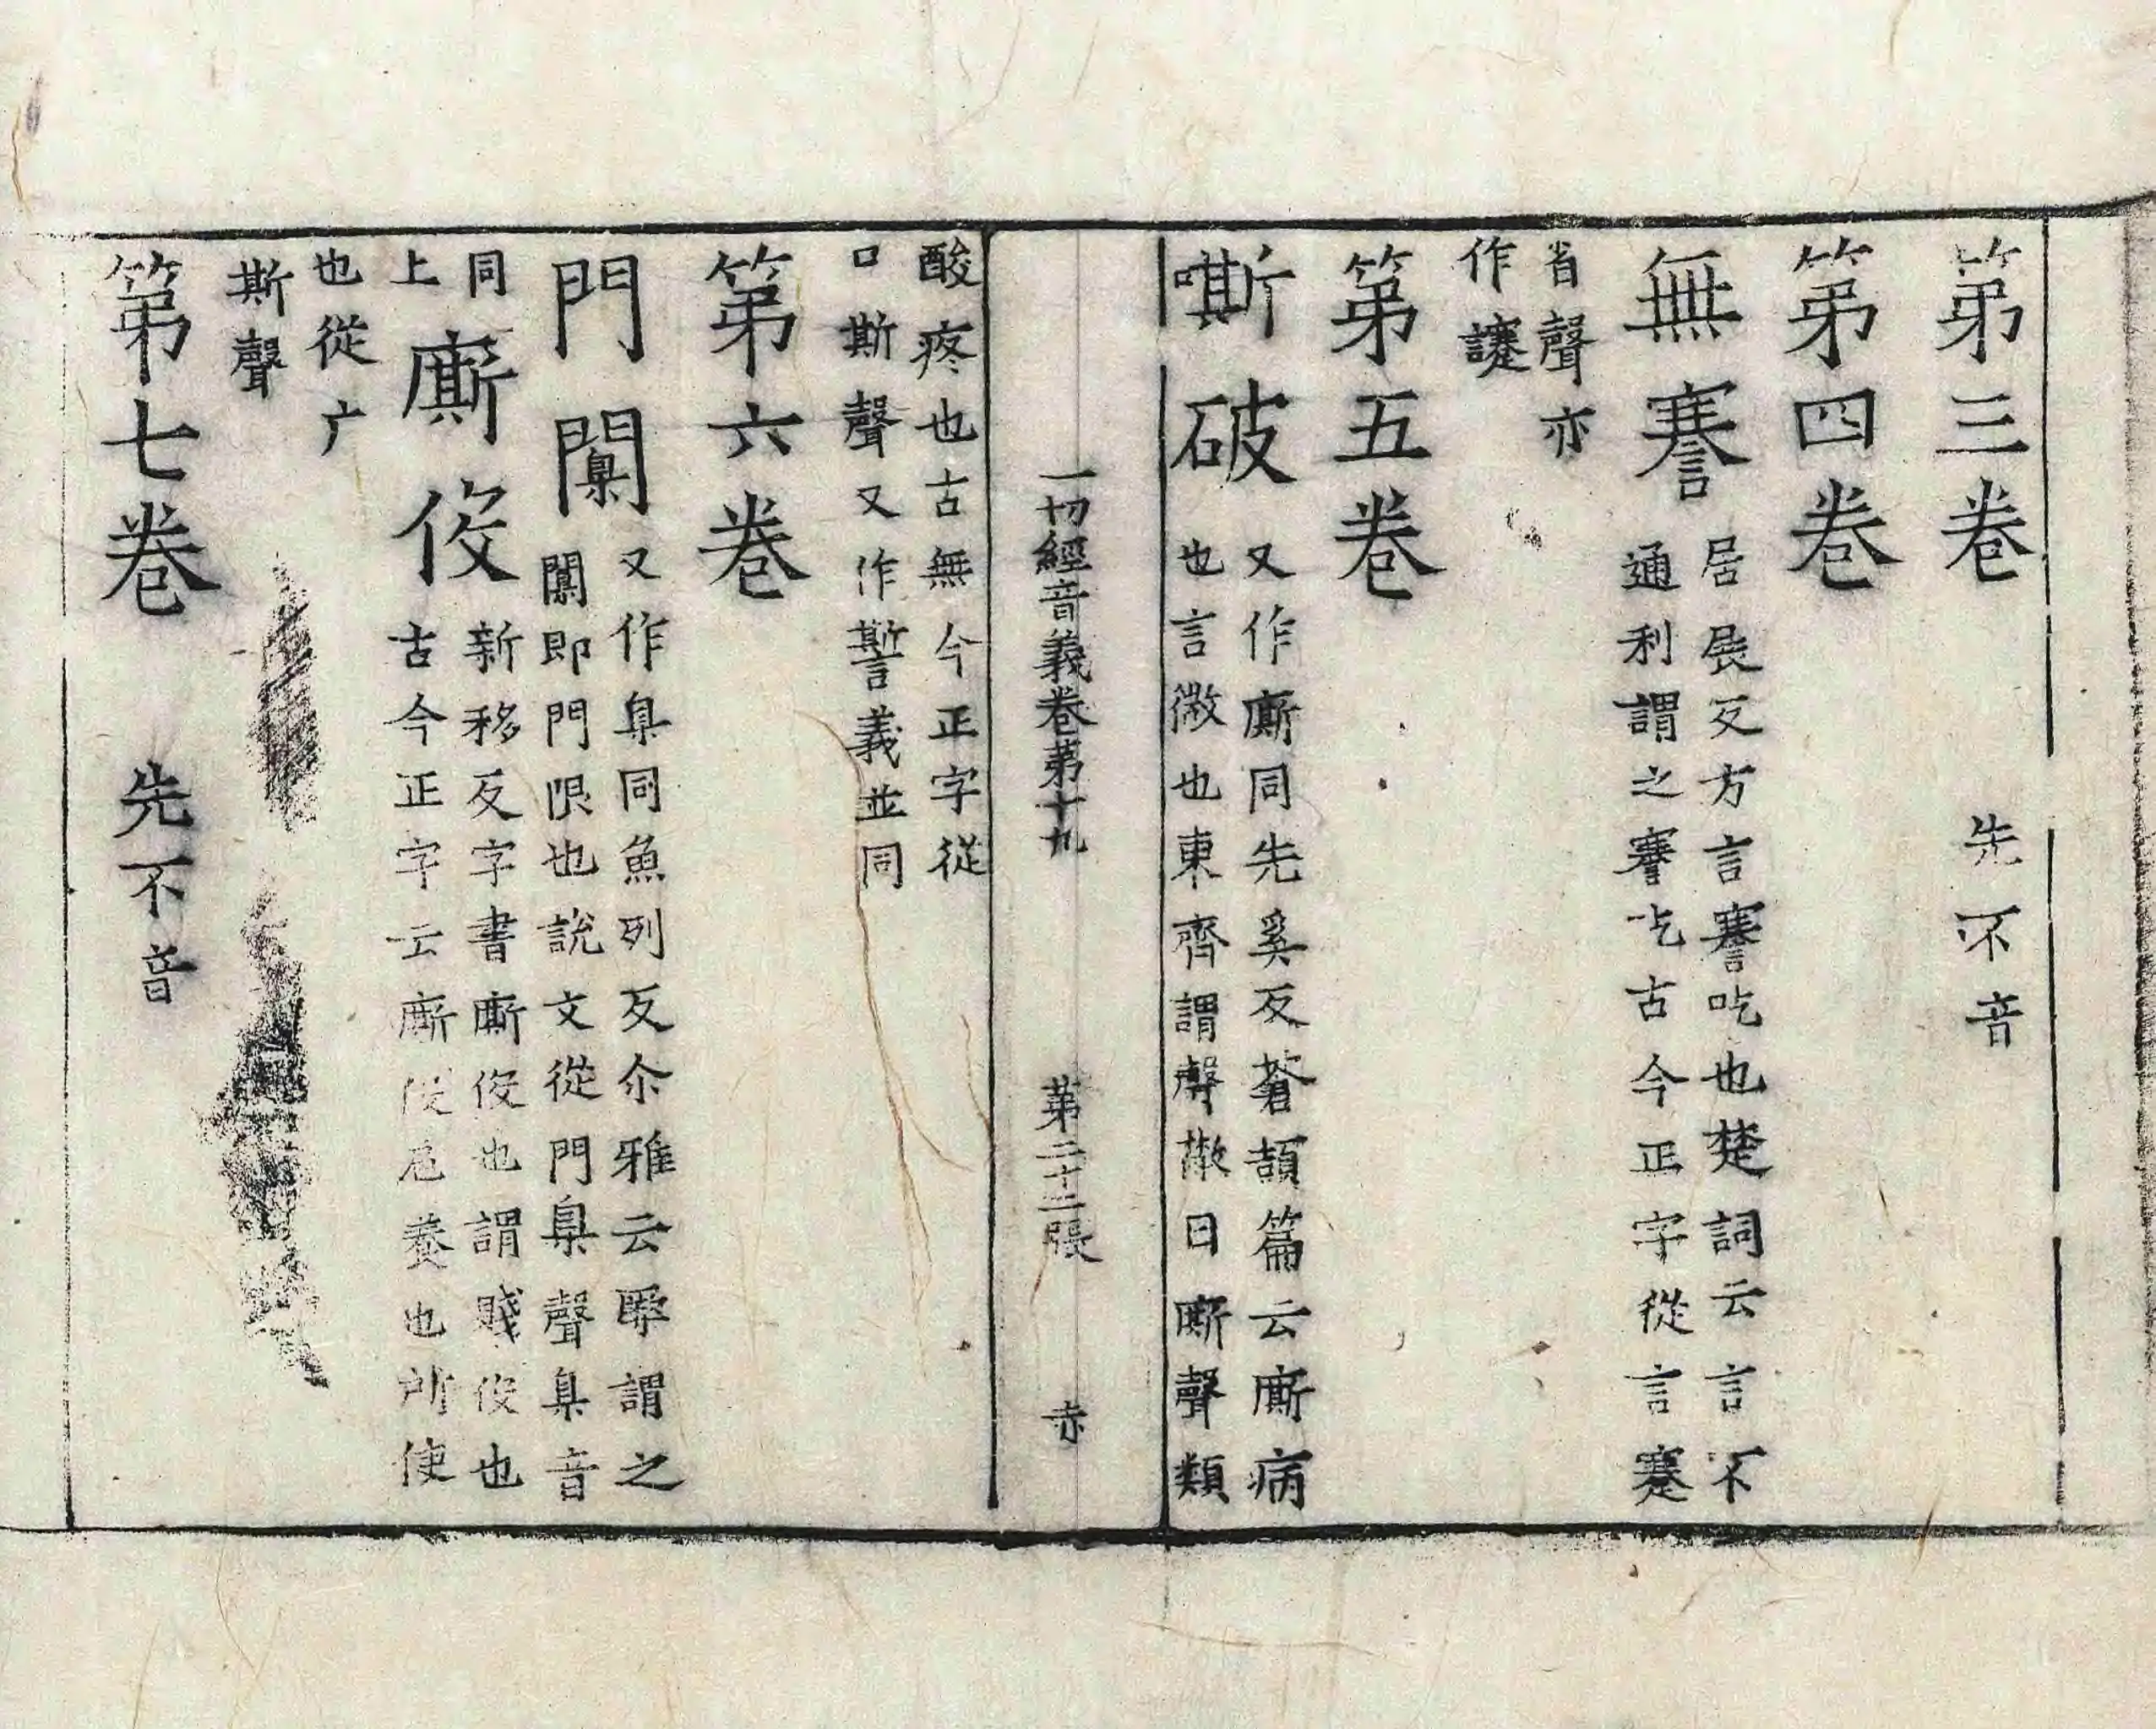 第三卷 先不音
第四卷
無謇居展反方言謇吃也楚詞云言不
通利謂之謇吃古今正字從言蹇
省聲亦
作讓
第五卷
嘶破又作廝同先奚反蒼頡篇云廝病
也言微也東齊謂聲散曰廝聲類
酸疼也古無今正字從
口斯聲又作誓義並同
一切經音義卷第十九 第二十二張 赤
第六卷
門闑又作臬同魚列反尒雅云橜謂之
闑即門限也說文從門臬聲臬音
同
上
廝伇新移反字書廝伇也謂賤伇也
古今正字云廝伇卮養也所使
也從广
斯聲
第七卷 先不音